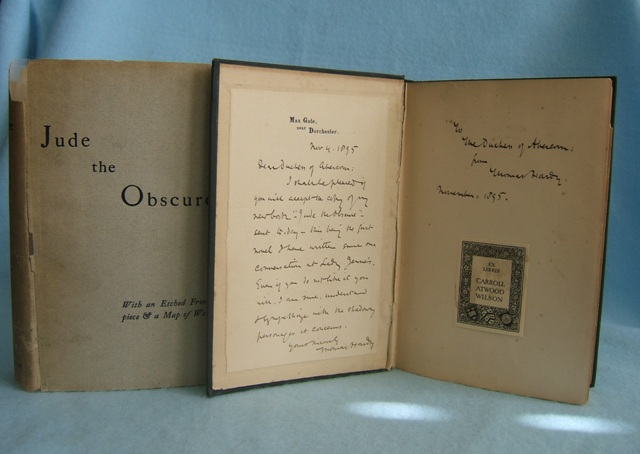 Jude
the
Obscure
With an Etched Fron
piece & a Map of We
Max Gate,
near Dorchester.
Nov 4. 1895
Dear Duchess of Abercorn:
I shall be pleased if
you will accept the copy of my
new book "Jude the Obscure"
sent to-day – this being the first
novel I have written since our
conversation at Lady Jeune's.
Even if you do not like it you
will, I am sure, understand
& sympathize with the shadowy
personages it concerns.
Yours sincerely
Thomas Hardy
To
The Duchess of Abercorn:
from
Thomas Hardy.
November. 1895.
EX
LIBRIS
CARROLL
ATWOOD
WILSON